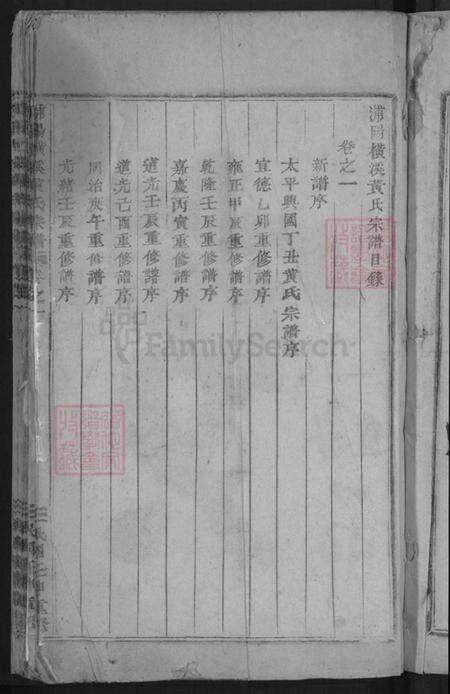 浦陽橫溪黃氏宗譜目錄
卷之一
新譜序
太平興國丁丑黃氏宗譜序
宣德乙卯重修譜序
雍正甲辰重修譜序
乾隆壬辰重修譜序
嘉慶丙寅重修譜序
道光壬辰重修譜序
道光己酉重修譜序
同治庚午重修譜序
光緒壬辰重修譜序
FamilySearch